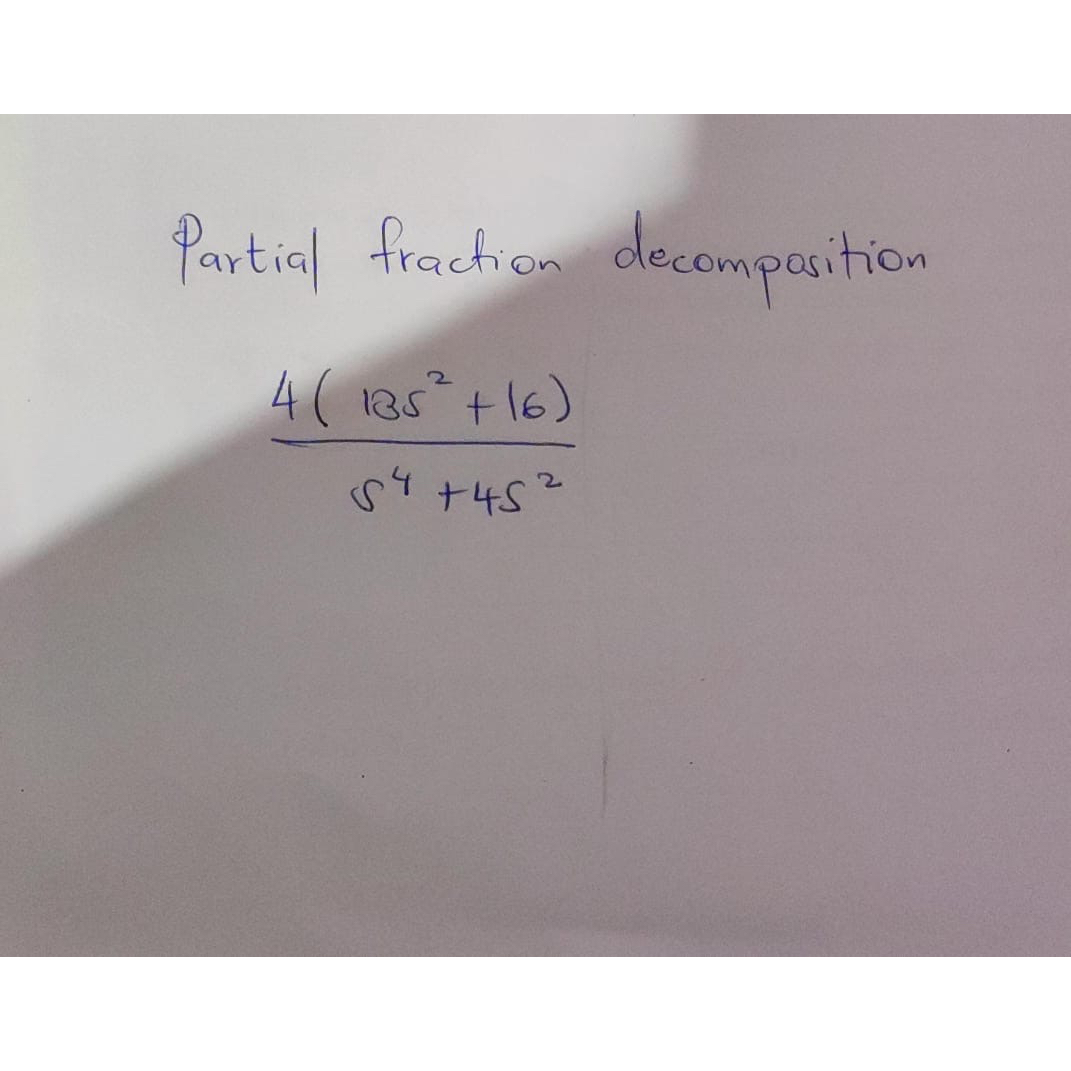 Partial fraction decomposition
4(13s² + 16)
s⁴ + 4s²